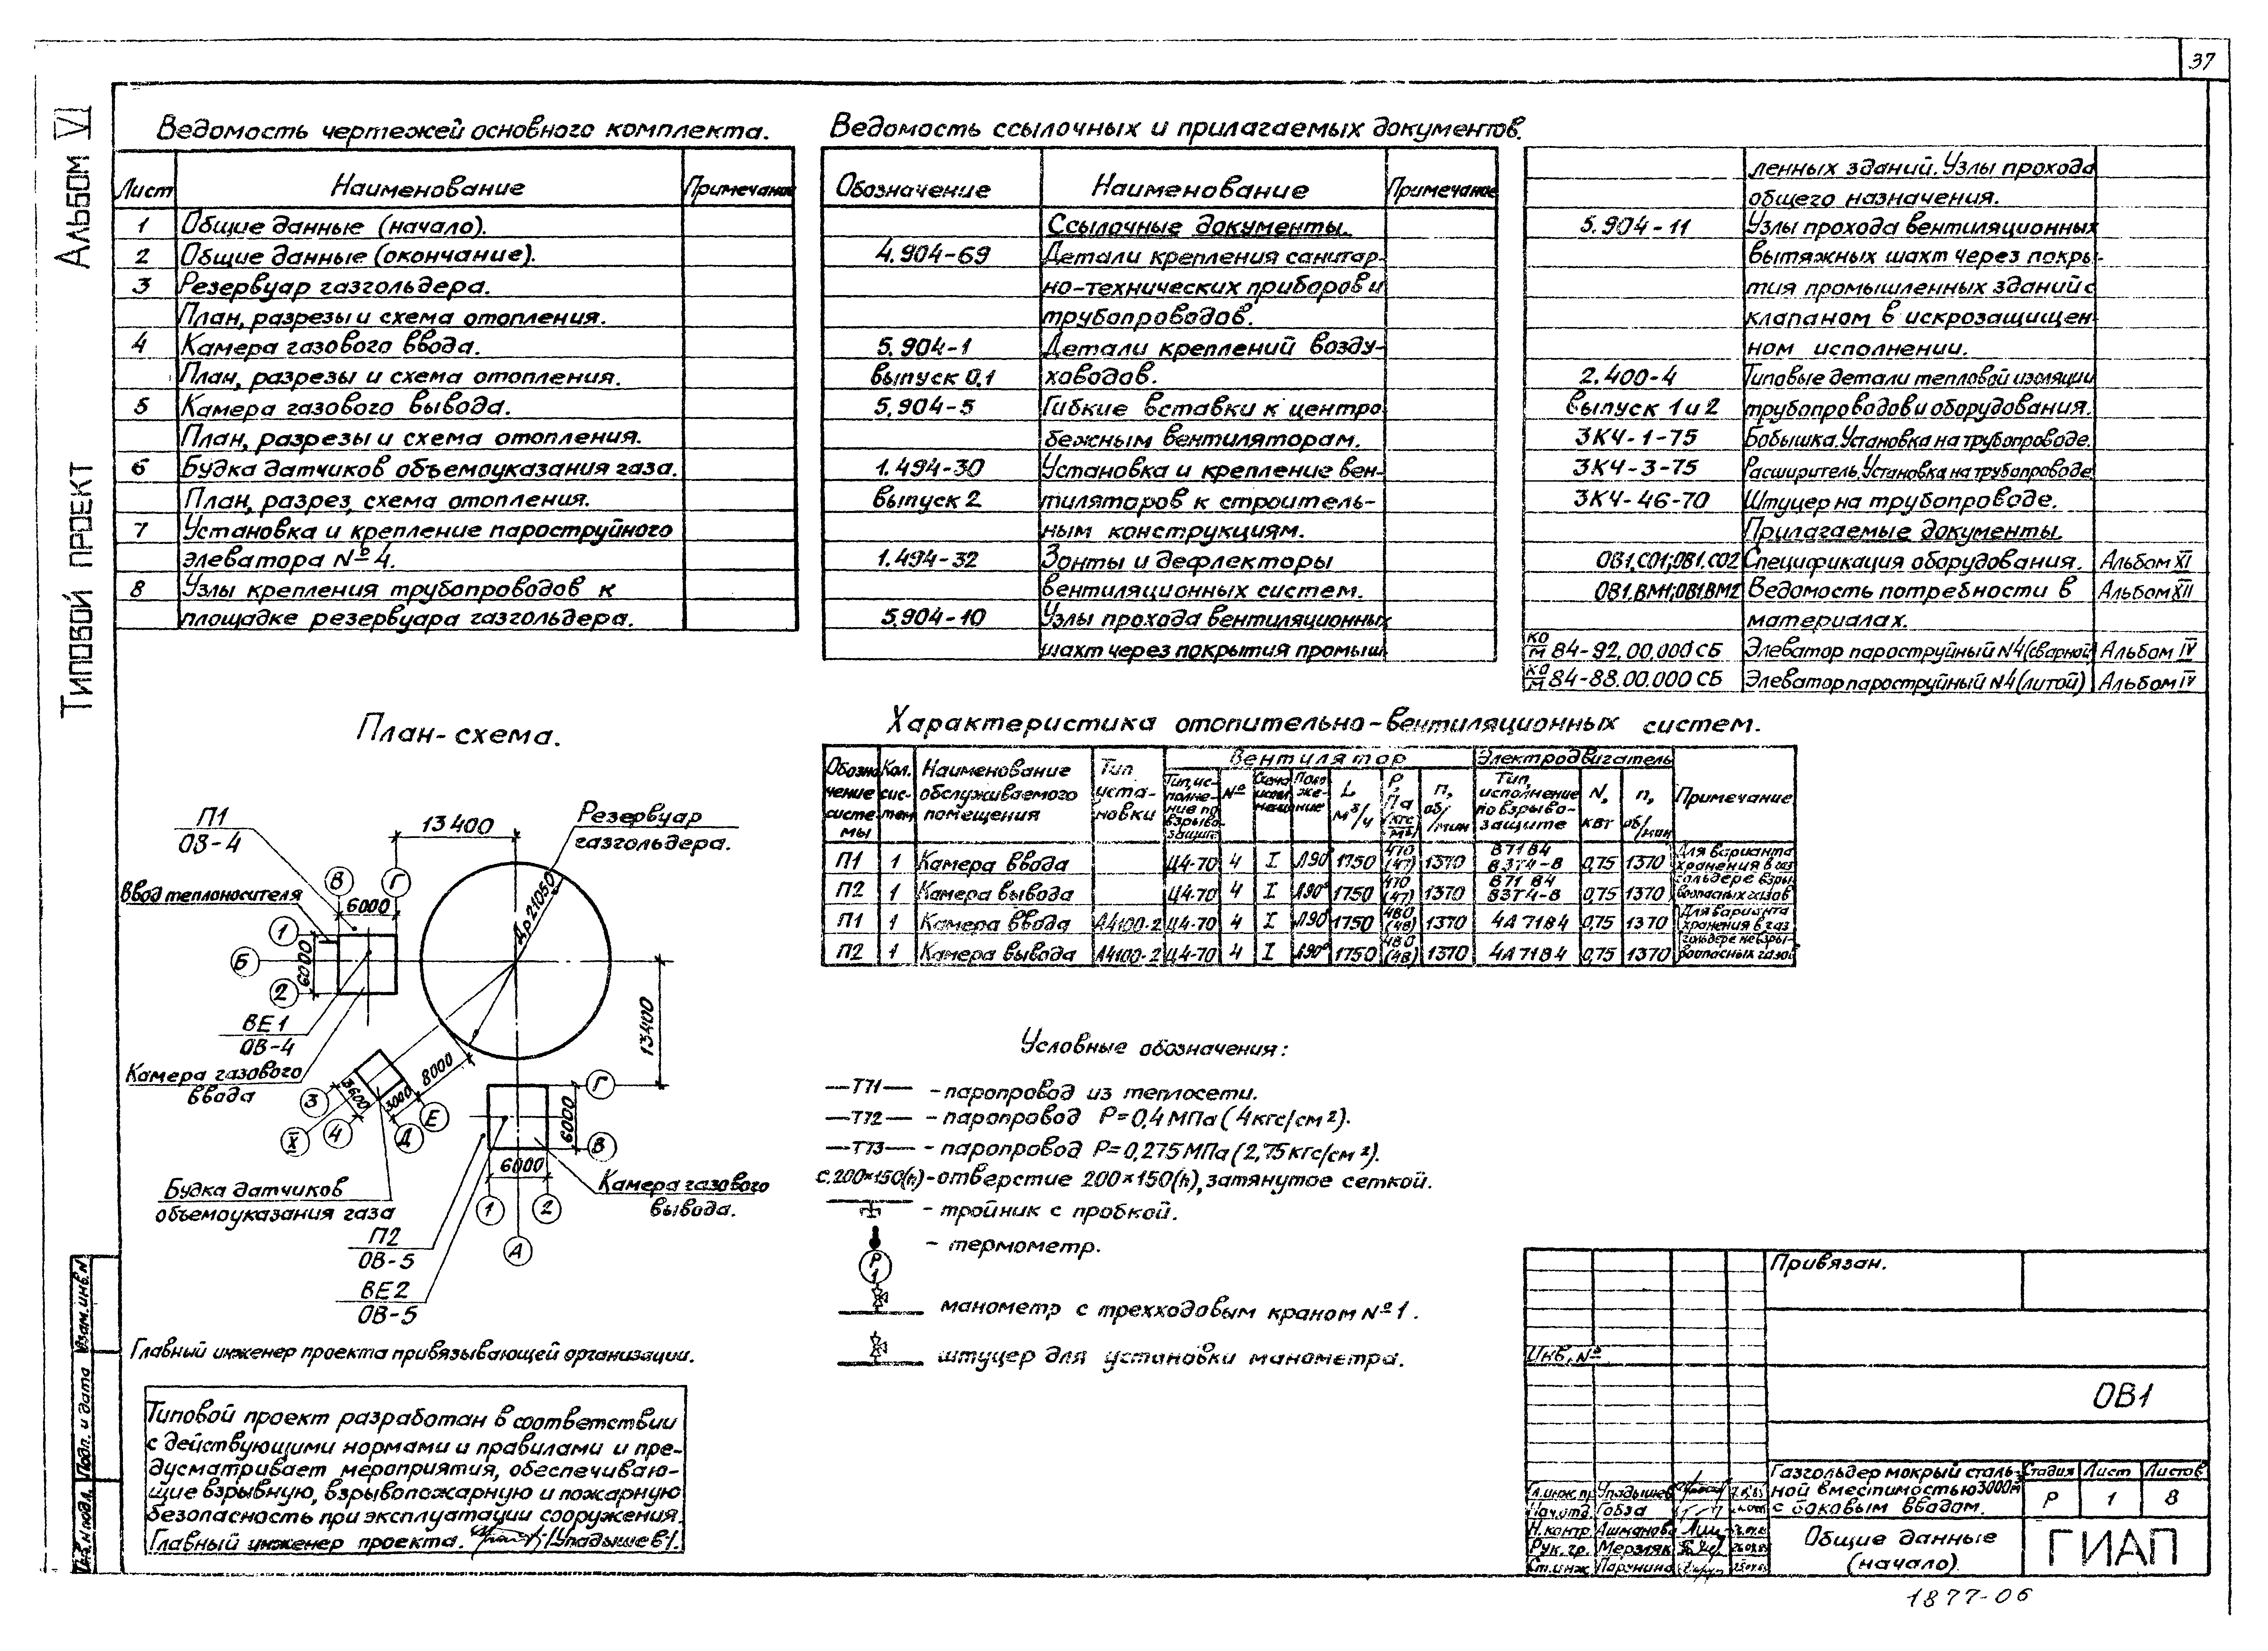 37
Альбом VI
Типовой проект
Ведомость чертежей основного комплекта.
Лист Наименование Примечание
1 Общие данные (начало).
2 Общие данные (окончание).
3 Резервуар газгольдера.
План, разрезы и схема отопления.
4 Камера газового ввода.
План, разрезы и схема отопления.
5 Камера газового вывода.
План, разрезы и схема отопления.
6 Будка датчиков объемоуказания газа.
План, разрез, схема отопления.
7 Установка и крепление пароструйного
элеватора №4.
8 Узлы крепления трубопроводов к
площадке резервуара газгольдера.
Ведомость ссылочных и прилагаемых документов.
Обозначение Наименование Примечание
Ссылочные документы.
4.904-69 Детали крепления санитар-
но-технических приборов и
трубопроводов.
5.904-1 Детали креплений возду-
выпуск 0,1 ховодов.
5.904-5 Гибкие вставки к центро
бежным вентиляторам.
1.494-30 Установка и крепление вен-
выпуск 2 тиляторов к строитель-
ным конструкциям.
1.494-32 Зонты и дефлекторы
вентиляционных систем.
5.904-10 Узлы прохода вентиляционных
шахт через покрытия промыш
ленных зданий. Узлы прохода
общего назначения.
5.904-11 Узлы прохода вентиляционных
вытяжных шахт через покры-
тия промышленных зданий с
клапаном в искрозащищен
ном исполнении.
2.400-4 Типовые детали тепловой изоляции
Выпуск 1 и 2 трубопроводов и оборудования.
ЗКЧ-1-75 Бобышка. Установка на трубопроводе.
ЗКЧ-3-75 Расширитель. Установка на трубопроводе
ЗКЧ-46-70 Штуцер на трубопроводе.
Прилагаемые документы.
ОВ1.СО1; ОВ1.СО2 Спецификация оборудования. Альбом XI
ОВ1.ВМ1; ОВ1.ВМ2 Ведомость потребности в Альбом XII
материалах.
КО/М 84-92.00.000 СБ Элеватор пароструйный №4 (сварной) Альбом IV
КО/М 84-88.00.000 СБ Элеватор пароструйный №4 (литой) Альбом IV
План-схема.
П1
ОВ-4
13400
Резервуар
газгольдера.
В
Г
Ввод теплоносителя
6000
Др=21050
1
Б
6000
2
ВЕ1
ОВ-4
13400
Камера газового
ввода
3600
3000
8000
3
4
X
Д
Е
Г
6000
В
6000
Будка датчиков
объемоуказания газа
Камера газового
вывода.
1
2
А
П2
ОВ-5
ВЕ2
ОВ-5
Характеристика отопительно-вентиляционных систем.
Обозначение системы Кол. систем Наименование обслуживаемого помещения Тип установки Вентилятор Электродвигатель Примечание
Тип, исполнение по взрывозащите № Схема исполнения Положение L, м³/ч Р, Па (кгс/м²) n, об/мин Тип, исполнение по взрывозащите N, квт n, об/мин
П1 1 Камера ввода Ц4-70 4 I Л90° 1750 470 (47) 1370 В71В4 В3Т4-В 0,75 1370 Для варианта хранения в газ
П2 1 Камера вывода Ц4-70 4 I Л90° 1750 470 (47) 1370 В71В4 В3Т4-В 0,75 1370 гольдере взрывоопасных газов
П1 1 Камера ввода А4100-2 Ц4-70 4 I Л90° 1750 480 (48) 1370 4А71В4 0,75 1370 Для варианта хранения в газ
П2 1 Камера вывода А4100-2 Ц4-70 4 I Л90° 1750 480 (48) 1370 4А71В4 0,75 1370 гольдере невзрывоопасных газов
Условные обозначения:
—Т71— - паропровод из теплосети.
—Т72— - паропровод Р=0,4 МПа (4кгс/см²).
—Т73— - паропровод Р=0,275 МПа (2,75кгс/см²).
с.200×150(h) - отверстие 200×150(h), затянутое сеткой.
- тройник с пробкой.
- термометр.
Р
1
манометр с трехходовым краном №1.
штуцер для установки манометра.
Главный инженер проекта привязывающей организации.
Типовой проект разработан в соответствии
с действующими нормами и правилами и пре-
дусматривает мероприятия, обеспечиваю-
щие взрывную, взрывопожарную и пожарную
безопасность при эксплуатации сооружения.
Главный инженер проекта. /Упадышев/.
Взам. инв. №
Подп. и дата
Инв. № подл.
Привязан.
Инв. №
ОВ1
Гл.инж.пр Упадышев
Нач.отд. Гобза
Н.контр. Ашманова
Рук.гр. Мерзляк
Ст.инж.
Газгольдер мокрый сталь-
ной вместимостью 3000м³
с боковым вводом.
Стадия Лист Листов
Р 1 8
Общие данные
(начало).
ГИАП
1877-06